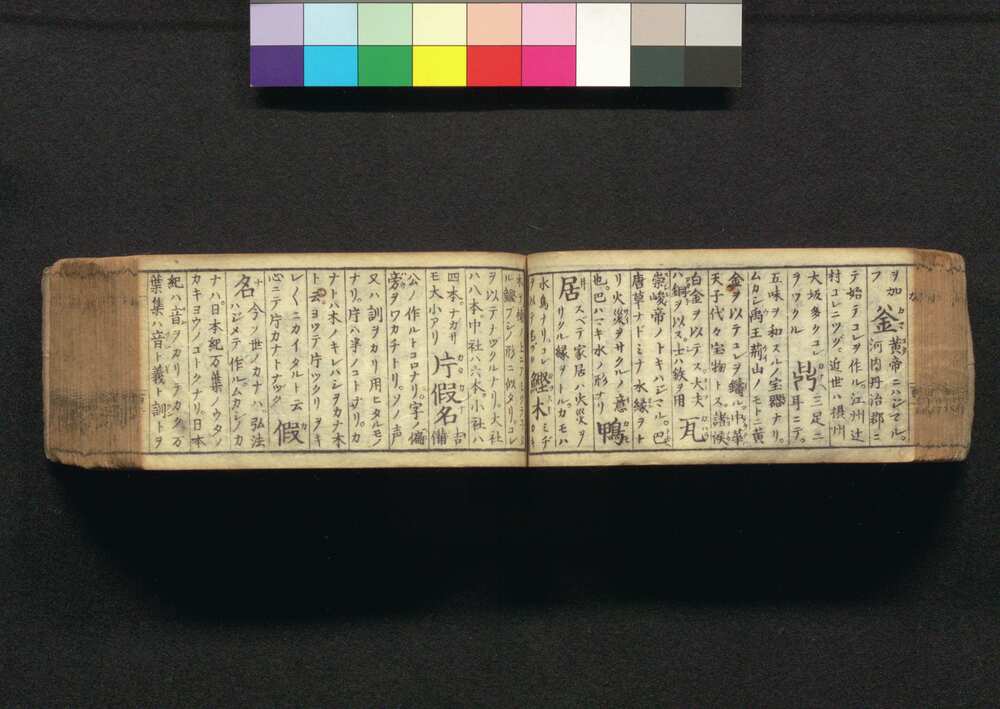 ヲ加フ
釜 黄帝ニハジマル。
河内丹治郡ニ
テ始テコレヲ作ル。江州辻
村コレニツグ。近世ハ摂州
大坂多クコレ
ヲワクル
鼎 三足ニ
耳ニテ。
五味ヲ和スルノ宝器ナリ。
ムカシ禹王荊山ノモトニ黄
金ヲ以テコレヲ鑄ル。中華
天子代々宝物トス諸候
白金ヲ以テス大夫
ハ銅ヲ以ス。士ハ鉄ヲ用
瓦
崇峻帝ノトキハジマル。巴
唐草ナドミナ水縁ヲト
リ火災ヲサクルノ意
也。巴ハウキ水ノ形ナリ
鴨居 スベテ家居ハ火災ヲ
オソリクル縁ヲトル。カモハ
水鳥ナリ。コレ
鰹木
ル鰹ブシノ形ニ似タリ。コレ
ヲ以テナヅクルナリ大社
ハ八本中社ハ六本。小社ハ
四本。ナガサ
モ大小アリ
片假名 吉備
公ノ作ルトコロナリ。字ノ偏
旁ヲワカチトリ。ソノ声
又ハ訓ヲカリ用ヒタルモノ
ナリ。片ハ半ノコトナリ。カ
ナトハ木ノキレハシヲカナ木
ト云ヨツテ片ツクリヲキ
レ〱ニカイタルト云
心ニテ片カナトナヅク
假名 今ノ世ノカナハ弘法
ハジメテ作ル。ムカシノカ
ナハ日本紀万葉ノウタノ
カキヨウノゴトクナリ。日本
紀ハ音ヲカリテカク万
葉集ハ音ト義ト訓トヲ